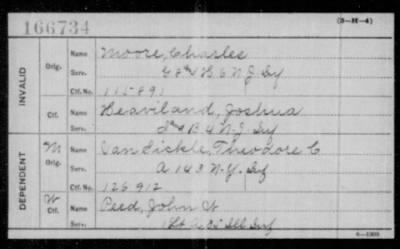 166734
(3-H-4)
INVALID
Orig.
Name Moore, Charles
Serv. G & H. 6 N.J. Inf
Ctf. No. 115891
Ctf.
Name Heaviland, Joshua
Serv. B 4 N.J. Inf
DEPENDENT
M Orig.
Name Van Sickle, Theodore C
Serv. A 143 N.Y. Inf
Ctf. No. 126912
W Ctf.
Name Peed, John W
Serv. A Ill Inf